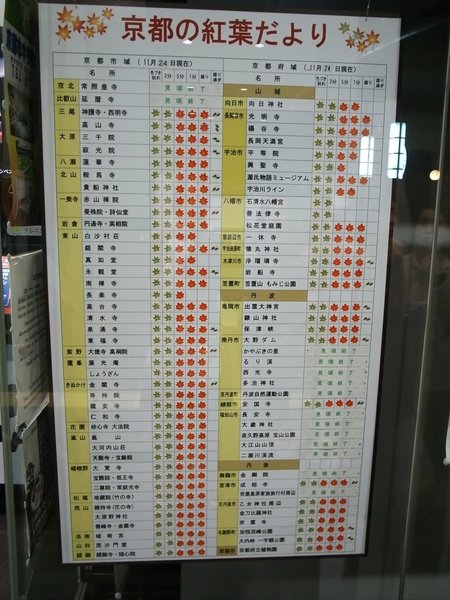 京都の紅葉だより
京都市域 (11月24日現在)
名所 色づき始め 3分 5分 7分 盛り
京北 常照皇寺 見頃終了
比叡山 延暦寺 見頃終了
三尾 神護寺・西明寺
高山寺
大原 三千院
寂光院
八瀬 蓮華寺
北山 鞍馬寺
貴船神社
一乗寺 赤山禅院
曼殊院・詩仙堂
岩倉 円通寺・実相院
東山 白沙村荘
銀閣寺
真如堂
永観堂
南禅寺
長楽寺
高台寺
清水寺
泉涌寺
東福寺
紫野 大徳寺 高桐院
鷹峯 源光庵
しょうざん
きぬかけ 金閣寺
等持院
龍安寺
仁和寺
花園 妙心寺 大法院
嵐山 嵐山
大河内山荘
天龍寺・宝厳院
嵯峨野 大覚寺
祇王寺
二尊院・常寂光寺
松尾 地蔵院(竹の寺)
西山 勝持寺(花の寺)
大原野神社
善峰寺・金蔵寺
洛南 城南宮
山科 毘沙門堂
醍醐 醍醐寺・随心院
京都府域 (11月24日現在)
名所 色づき始め 3分 5分 7分 盛り
山城
向日市 向日神社
長岡京市 光明寺
楊谷寺
長岡天満宮
宇治市 平等院
興聖寺
源氏物語ミュージアム
宇治川ライン
八幡市 石清水八幡宮
善法律寺
松花堂庭園
京田辺市 一休寺
宇治田原町 猿丸神社
木津川市 浄瑠璃寺
岩船寺
笠置町 笠置山 もみじ公園
丹波
亀岡市 出雲大神宮
鍬山神社
保津峡
南丹市 大野ダム
かやぶきの里 見頃終了
るり渓 見頃終了
西光寺 見頃終了
多治神社 見頃終了
京丹波町 丹波自然運動公園 見頃終了
綾部市 安国寺
福知山市 長安寺 見頃終了
大歳神社 見頃終了
夜久野高原 宝山公園 見頃終了
大江山山頂 見頃終了
二瀬川渓流 見頃終了
丹後
舞鶴市 金剛院 見頃終了
宮津市 成相寺
世屋高原家族旅行村周辺 見頃終了
京丹後市 乙女神社周辺
金刀比羅神社
宗雲寺
与謝野町 加悦双峰公園
大内峠 一字観公園
京都市 京都府立植物園